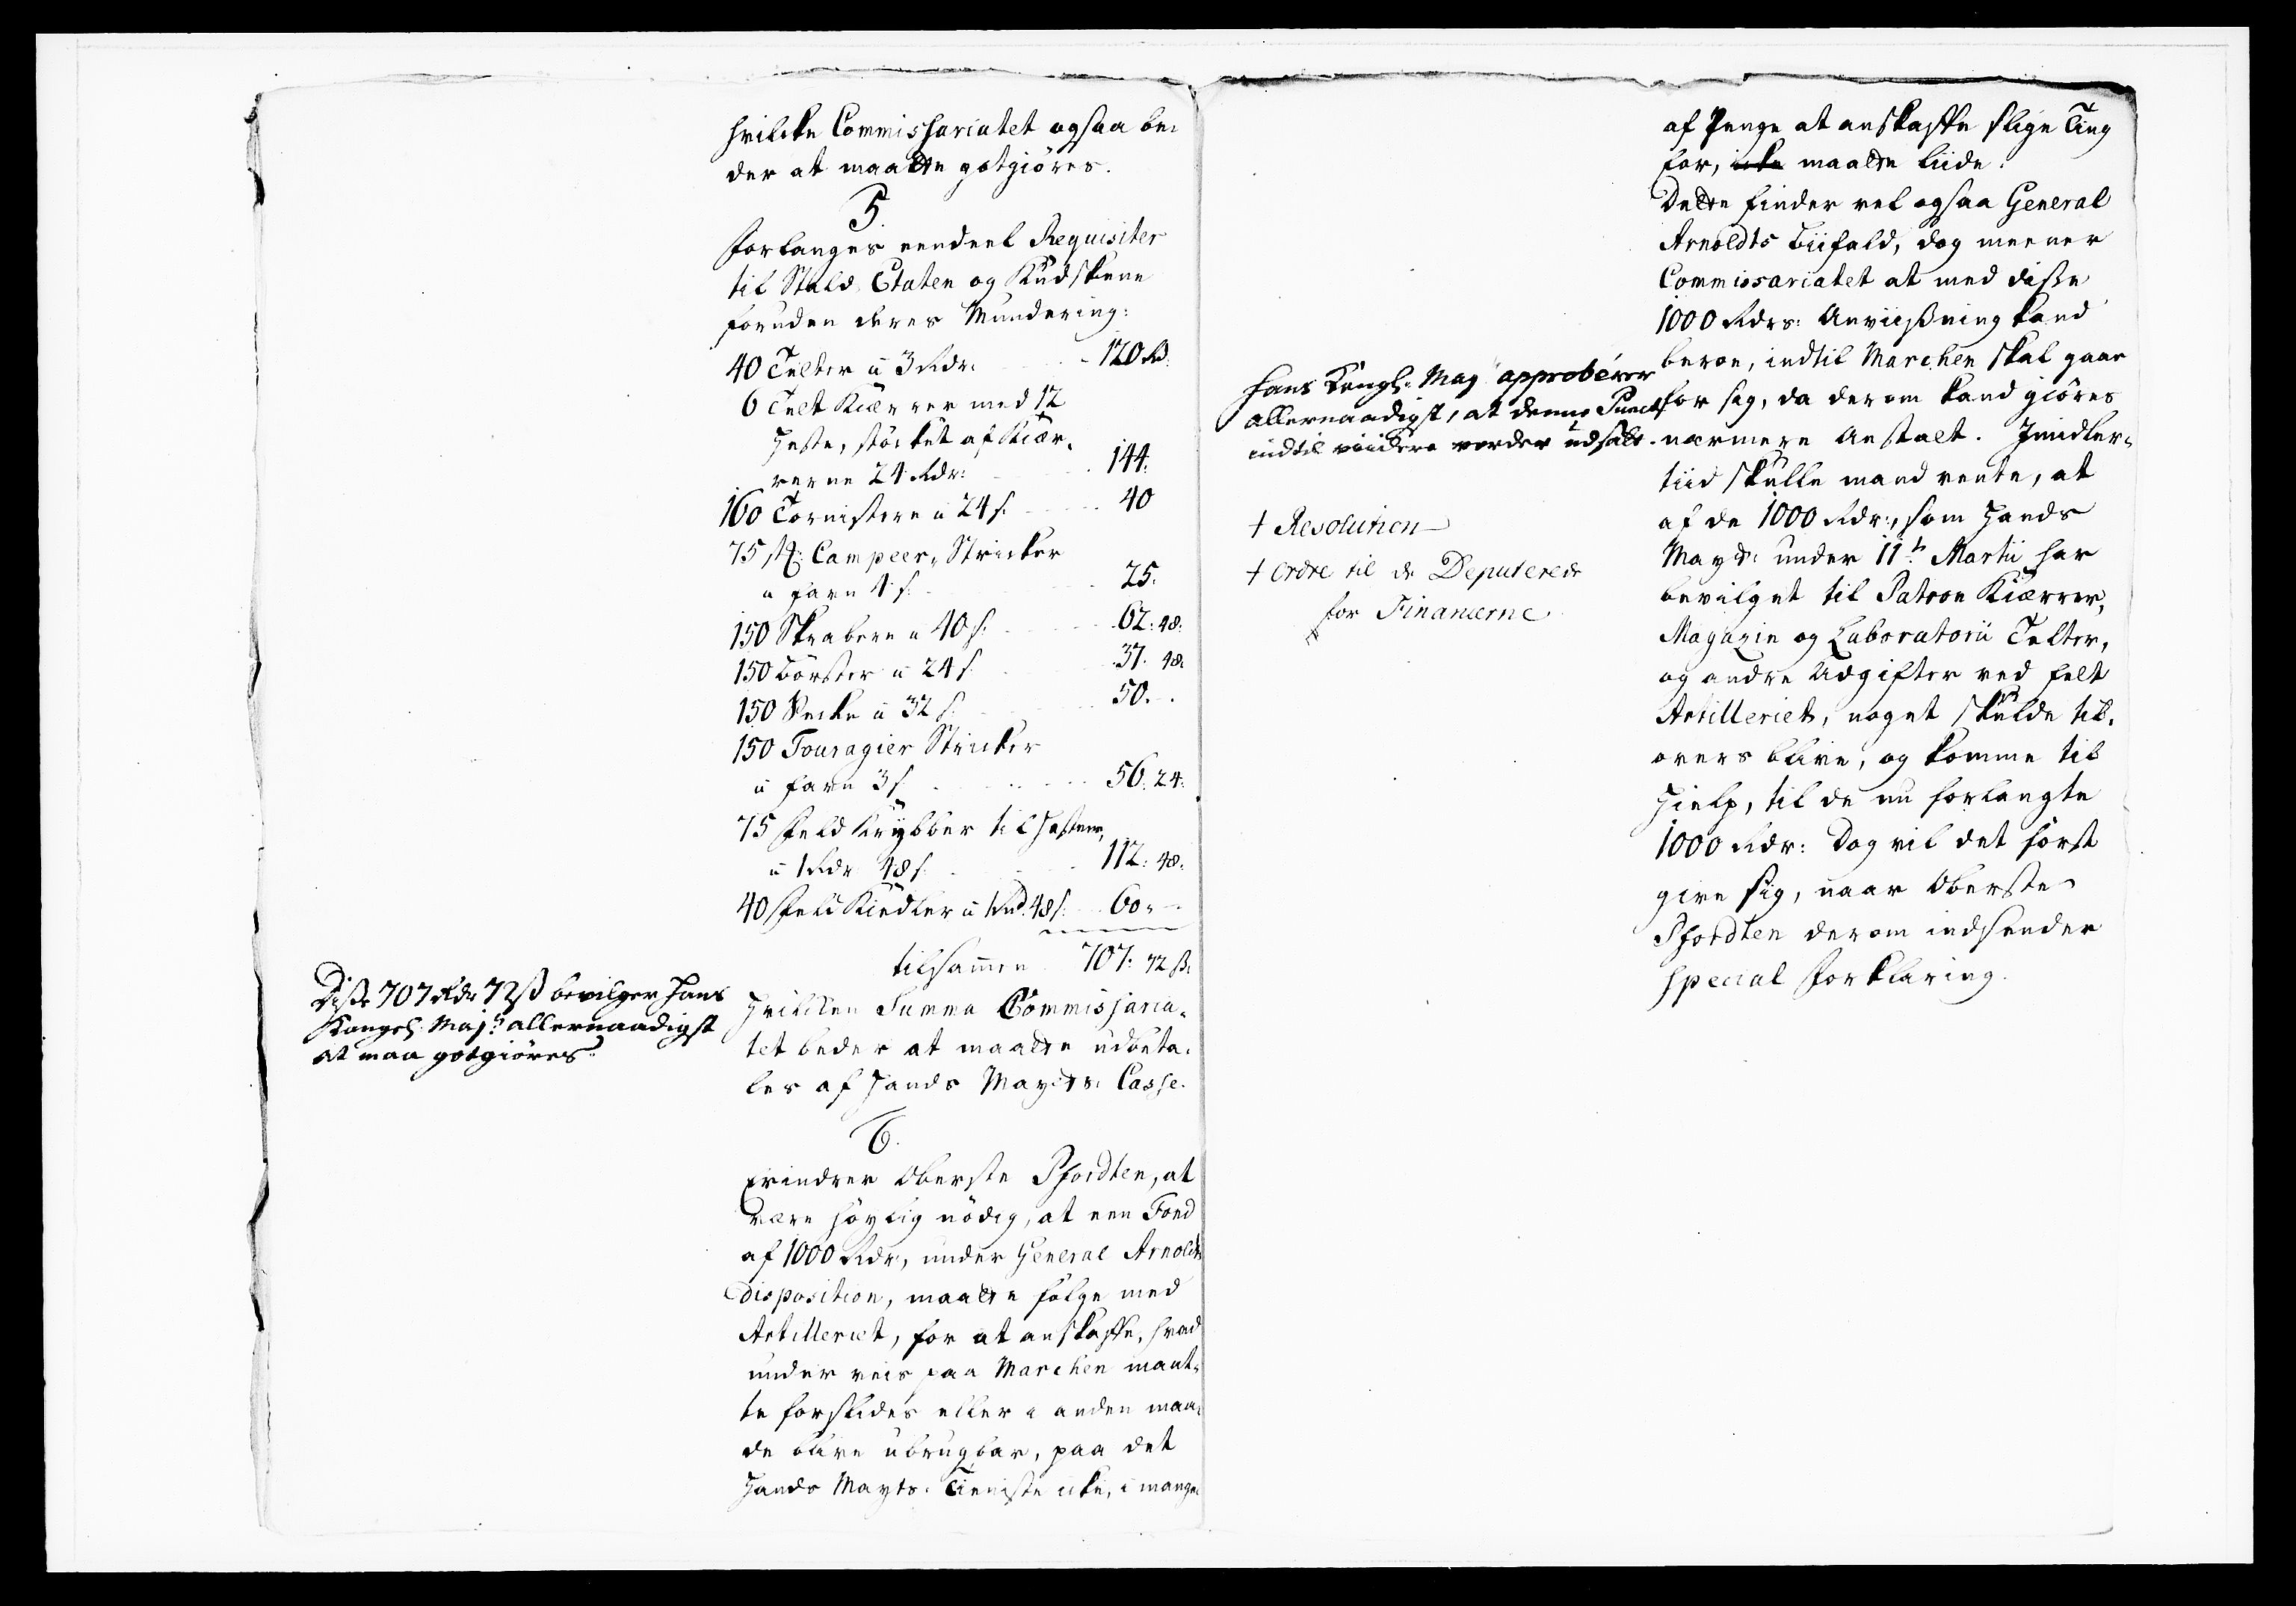 hvilcke Commissariatet ogsaa be-
der at maatte gotgiöres.
5.
Forlanges eendeel Requisiter
til Stald Etaten og Kudskene
foruden deres Mundering:
40 Telter a 3 Rdr. 120 Rd.
6 Telt Kiærrer med 12
Heste, støcket af Kiær-
rerne 24 Rdr: 144.
160 Tornistere a 24 s. 40
75 st: Campeer-Stricker
a favn 4 s. 25.
150 Skrabere a 40 s. 62: 48:
150 Börster a 24 s. 37. 48.
150 Secke a 32 s. 50.
150 Fouragier Stricker
a favn 3 s. 56: 24:
75 Feld Krybber til Hestene,
a 1 Rdr 48 s. 112: 48.
40 Feld Kiedler a 1 Rd. 48 s. 60.
tilsamen 707: 72 ß.
Disse 707 Rdr 72 ß bevilger Hans
Kongel. Majt. allernaadigst
at maa gotgiöres.
Hvilcken Summa Commissaria-
tet beder at maatte udbeta-
les af Hands Mayts: Casse.
6.
Erindrer Oberste Pfordten, at
være höylig nödig, at een Fond
af 1000 Rdr, under General Arnoldts
Disposition, maatte fölge med
Artilleriet, for at anskaffe, hvad
under veis paa Marchen maat-
te forslides eller i anden maa-
de blive ubrugbar, paa det
Hands Mayts. Tieniste icke, i mangel
af Penge at anskaffe slige Ting
for, icke maatte liide.
Dette finder vel ogsaa General
Arnoldts Biifald, dog meener
Commissariatet at med disse
1000 Rdrs: Anviisning kand
beroe, indtil Marchen skal gaae
for sig, da derom kand giöres
nærmere Anstalt. Imidler-
tiid skulle mand vente, at
af de 1000 Rdr:, som Hands
Mayt: under 11t. Martii har
bevilget til Patron Kiærrer,
Magazin og Laboratorii Telter,
og andre Udgifter ved felt
Artilleriet, noget skulde til-
overs blive, og komme til
Hielp, til de nu forlangte
1000 Rdr: Dog vil det först
give sig, naar Oberste
Pfordten derom indsender
special Forklaring.
Hans Kongl. May approberer
allernaadigst, at denne Punct
indtil viidere vorder udsatt.
+ Resolution
+ Ordre til de Deputerede
for Financerne